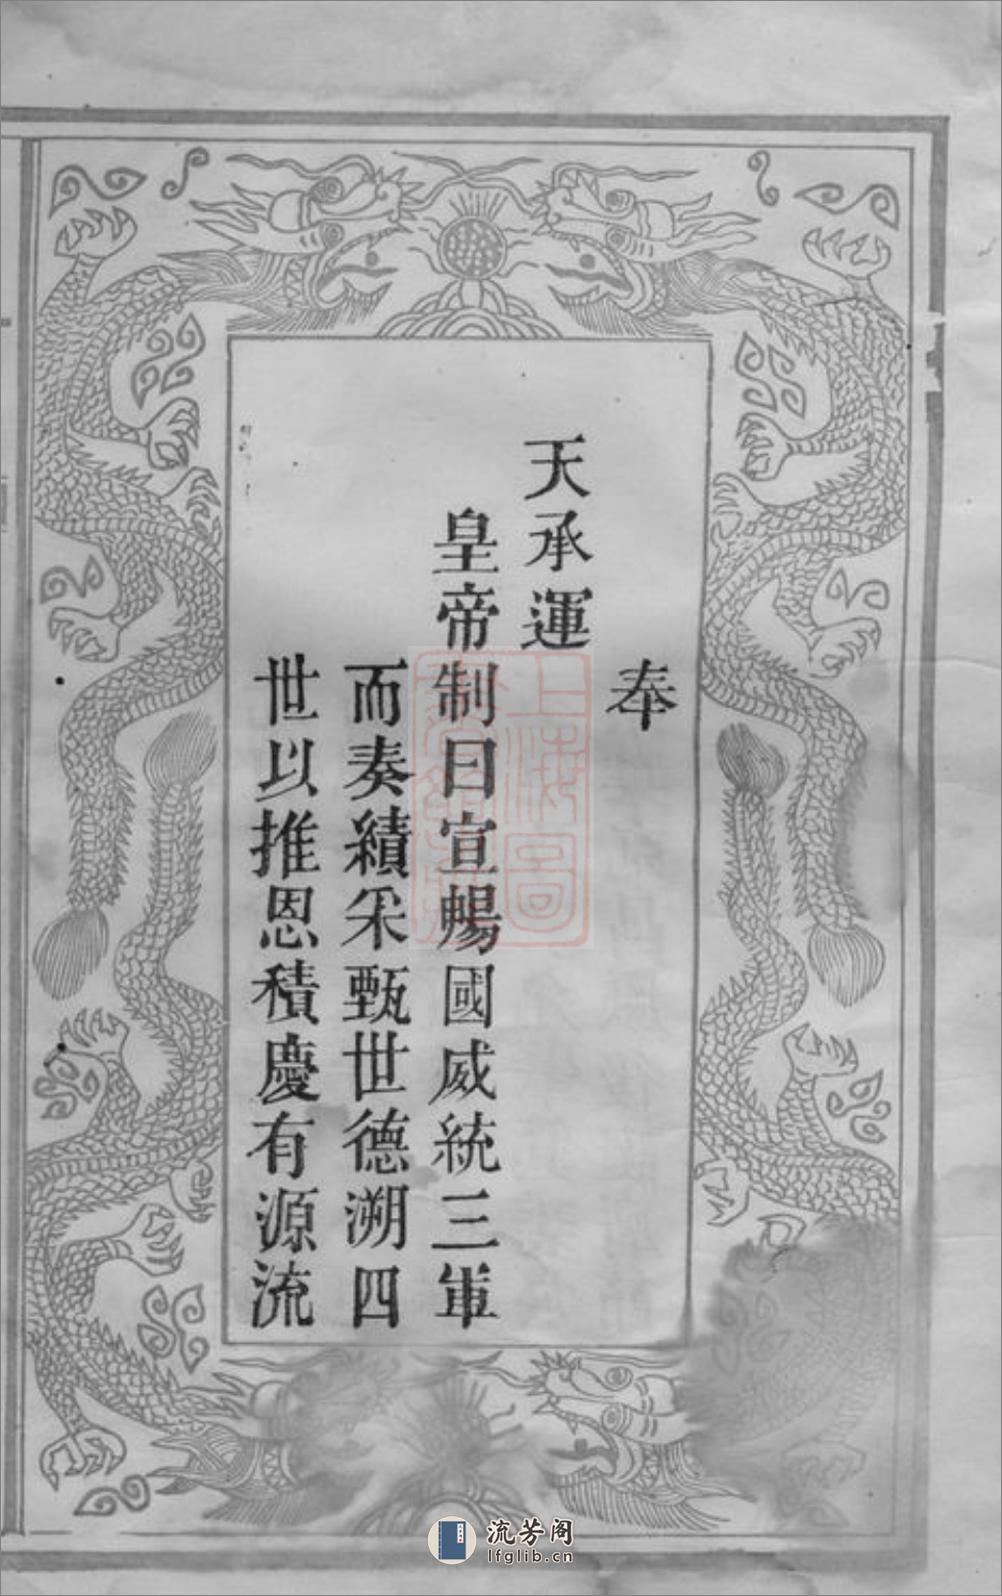 奉
天承運
皇帝制曰宣暢國威統三軍
而奏績釆甄世德溯四
世以推恩積慶有源流
上海圖
流芳阁
lfglib.cn